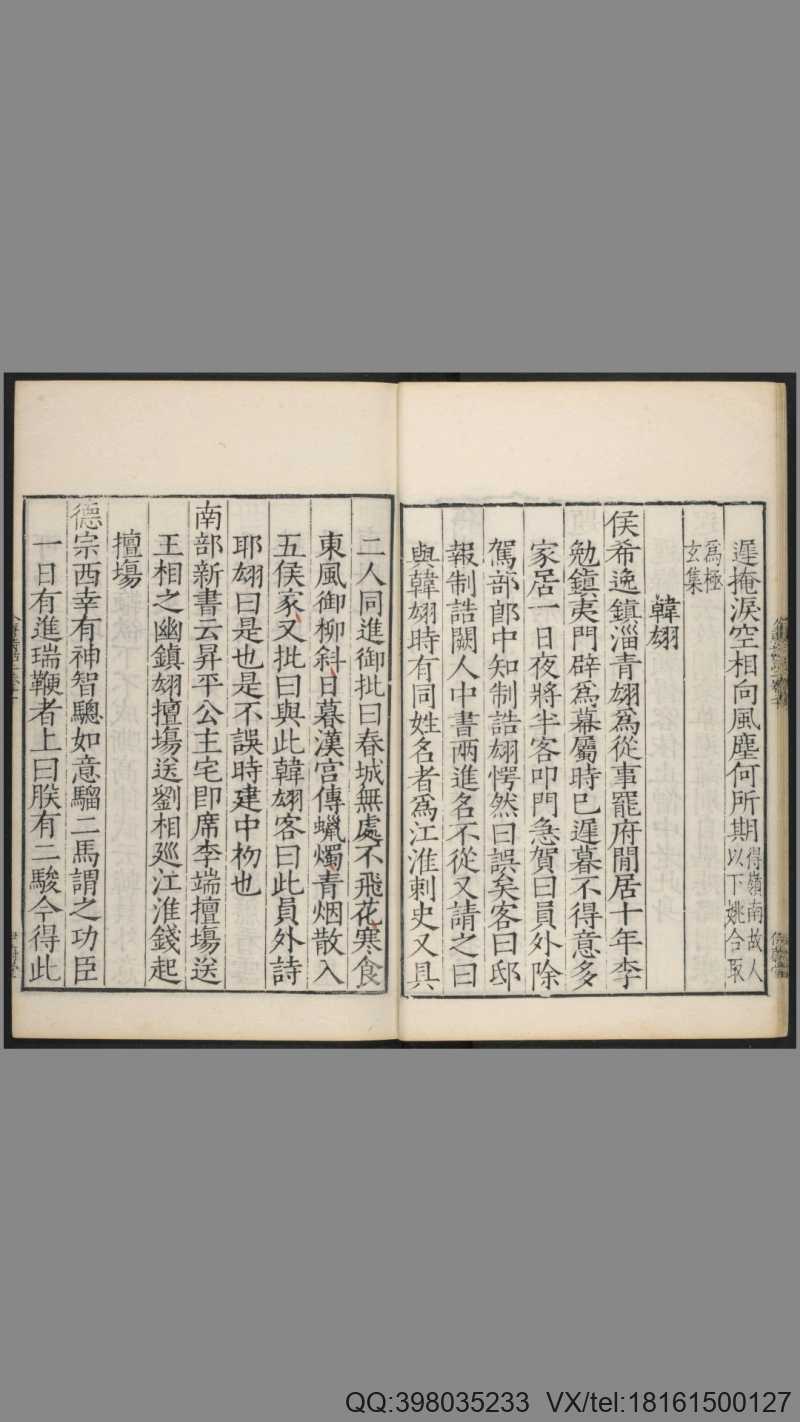 遲掩淚空相向風塵何所期得嶺南故人以下姚合取
爲極玄集
韓翃
侯希逸鎮淄青翃爲從事罷府閒居十年李
勉鎮夷門辟爲幕屬時已遲暮不得意多
家居一日夜將半客叩門急賀曰員外除
駕部郎中知制誥翃愕然曰誤矣客曰邸
報制誥闕人中書兩進名不從又請之曰
與韓翃時有同姓名者爲江淮刺史又具
二人同進御批曰春城無處不飛花寒食
東風御柳斜日暮漢宮傳蠟燭青烟散入
五侯家又批曰與此韓翃客曰此員外詩
耶翃曰是也是不誤時建中初也
南部新書云昇平公主宅即席李端擅場送
王相之幽鎮翃擅場送劉相廵江淮錢起
擅場
德宗西幸有神智驄如意騮二馬謂之功臣
一日有進瑞鞭者上曰朕有二駿今得此
QQ:398035233 VX/tel:18161500127